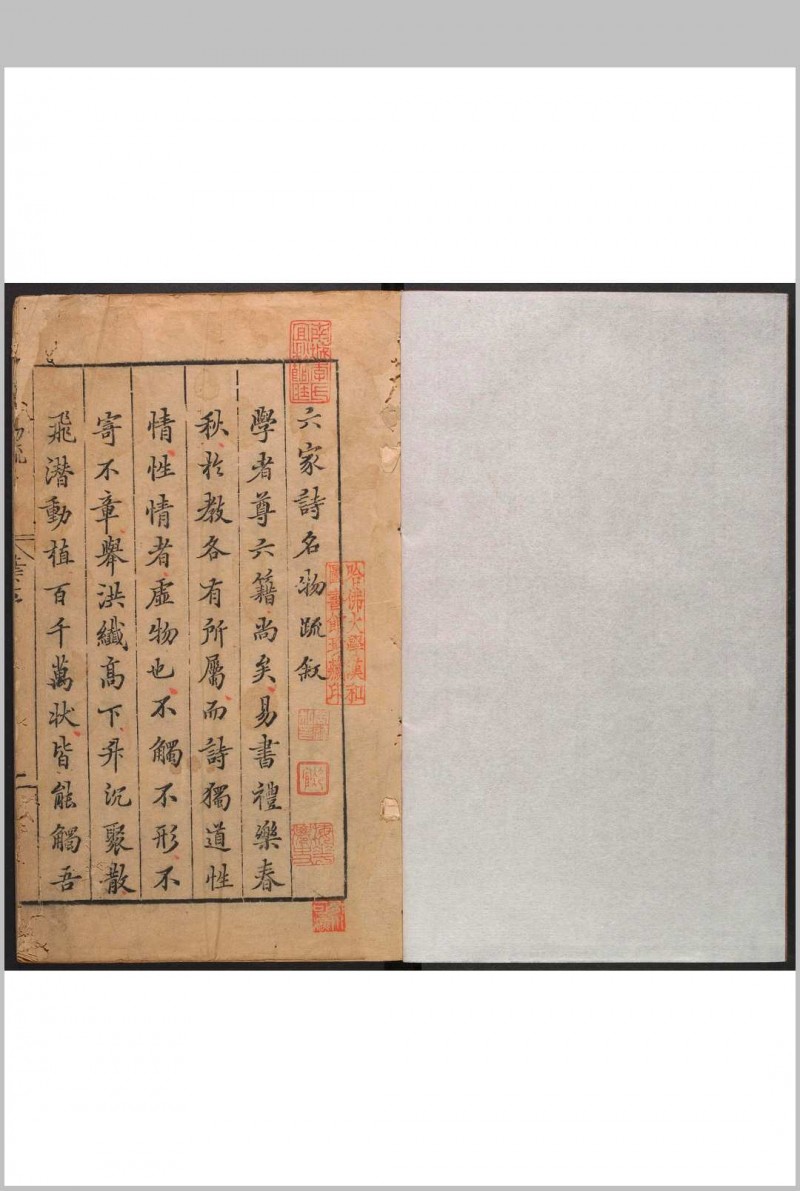 六家詩名物疏叙
學者尊六籍尚矣易書禮樂春
秋於教各有所屬而詩獨道性
情性情者虛物也不觸不形不
寄不章舉洪纖高下升沉聚散
飛潛動植百千萬狀皆能觸吾
哈佛大學漢和
圖書館珍藏印